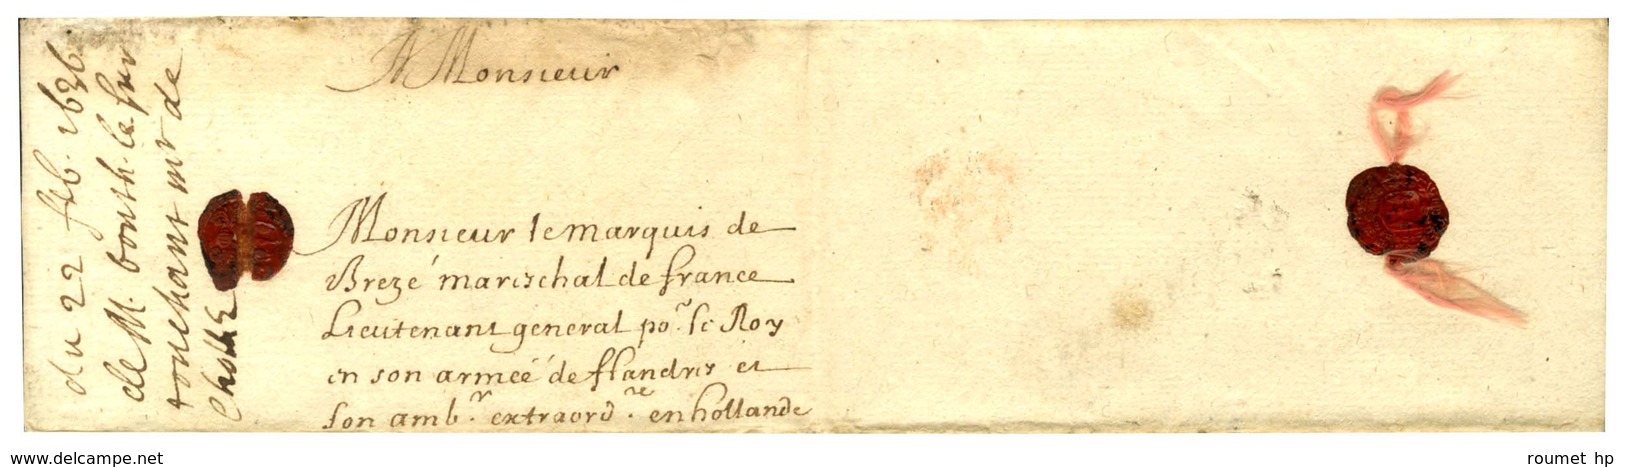 du 22 feb. 1636.
de M. bouth. le
touchant mr de
A Monsieur
Monsieur le marquis de
Brezé mareschal de france
Lieutenant general po.r le Roy
en son armée de flandres et
son amb.r extraord.re en hollande
www.delcampe.net
roumet hp